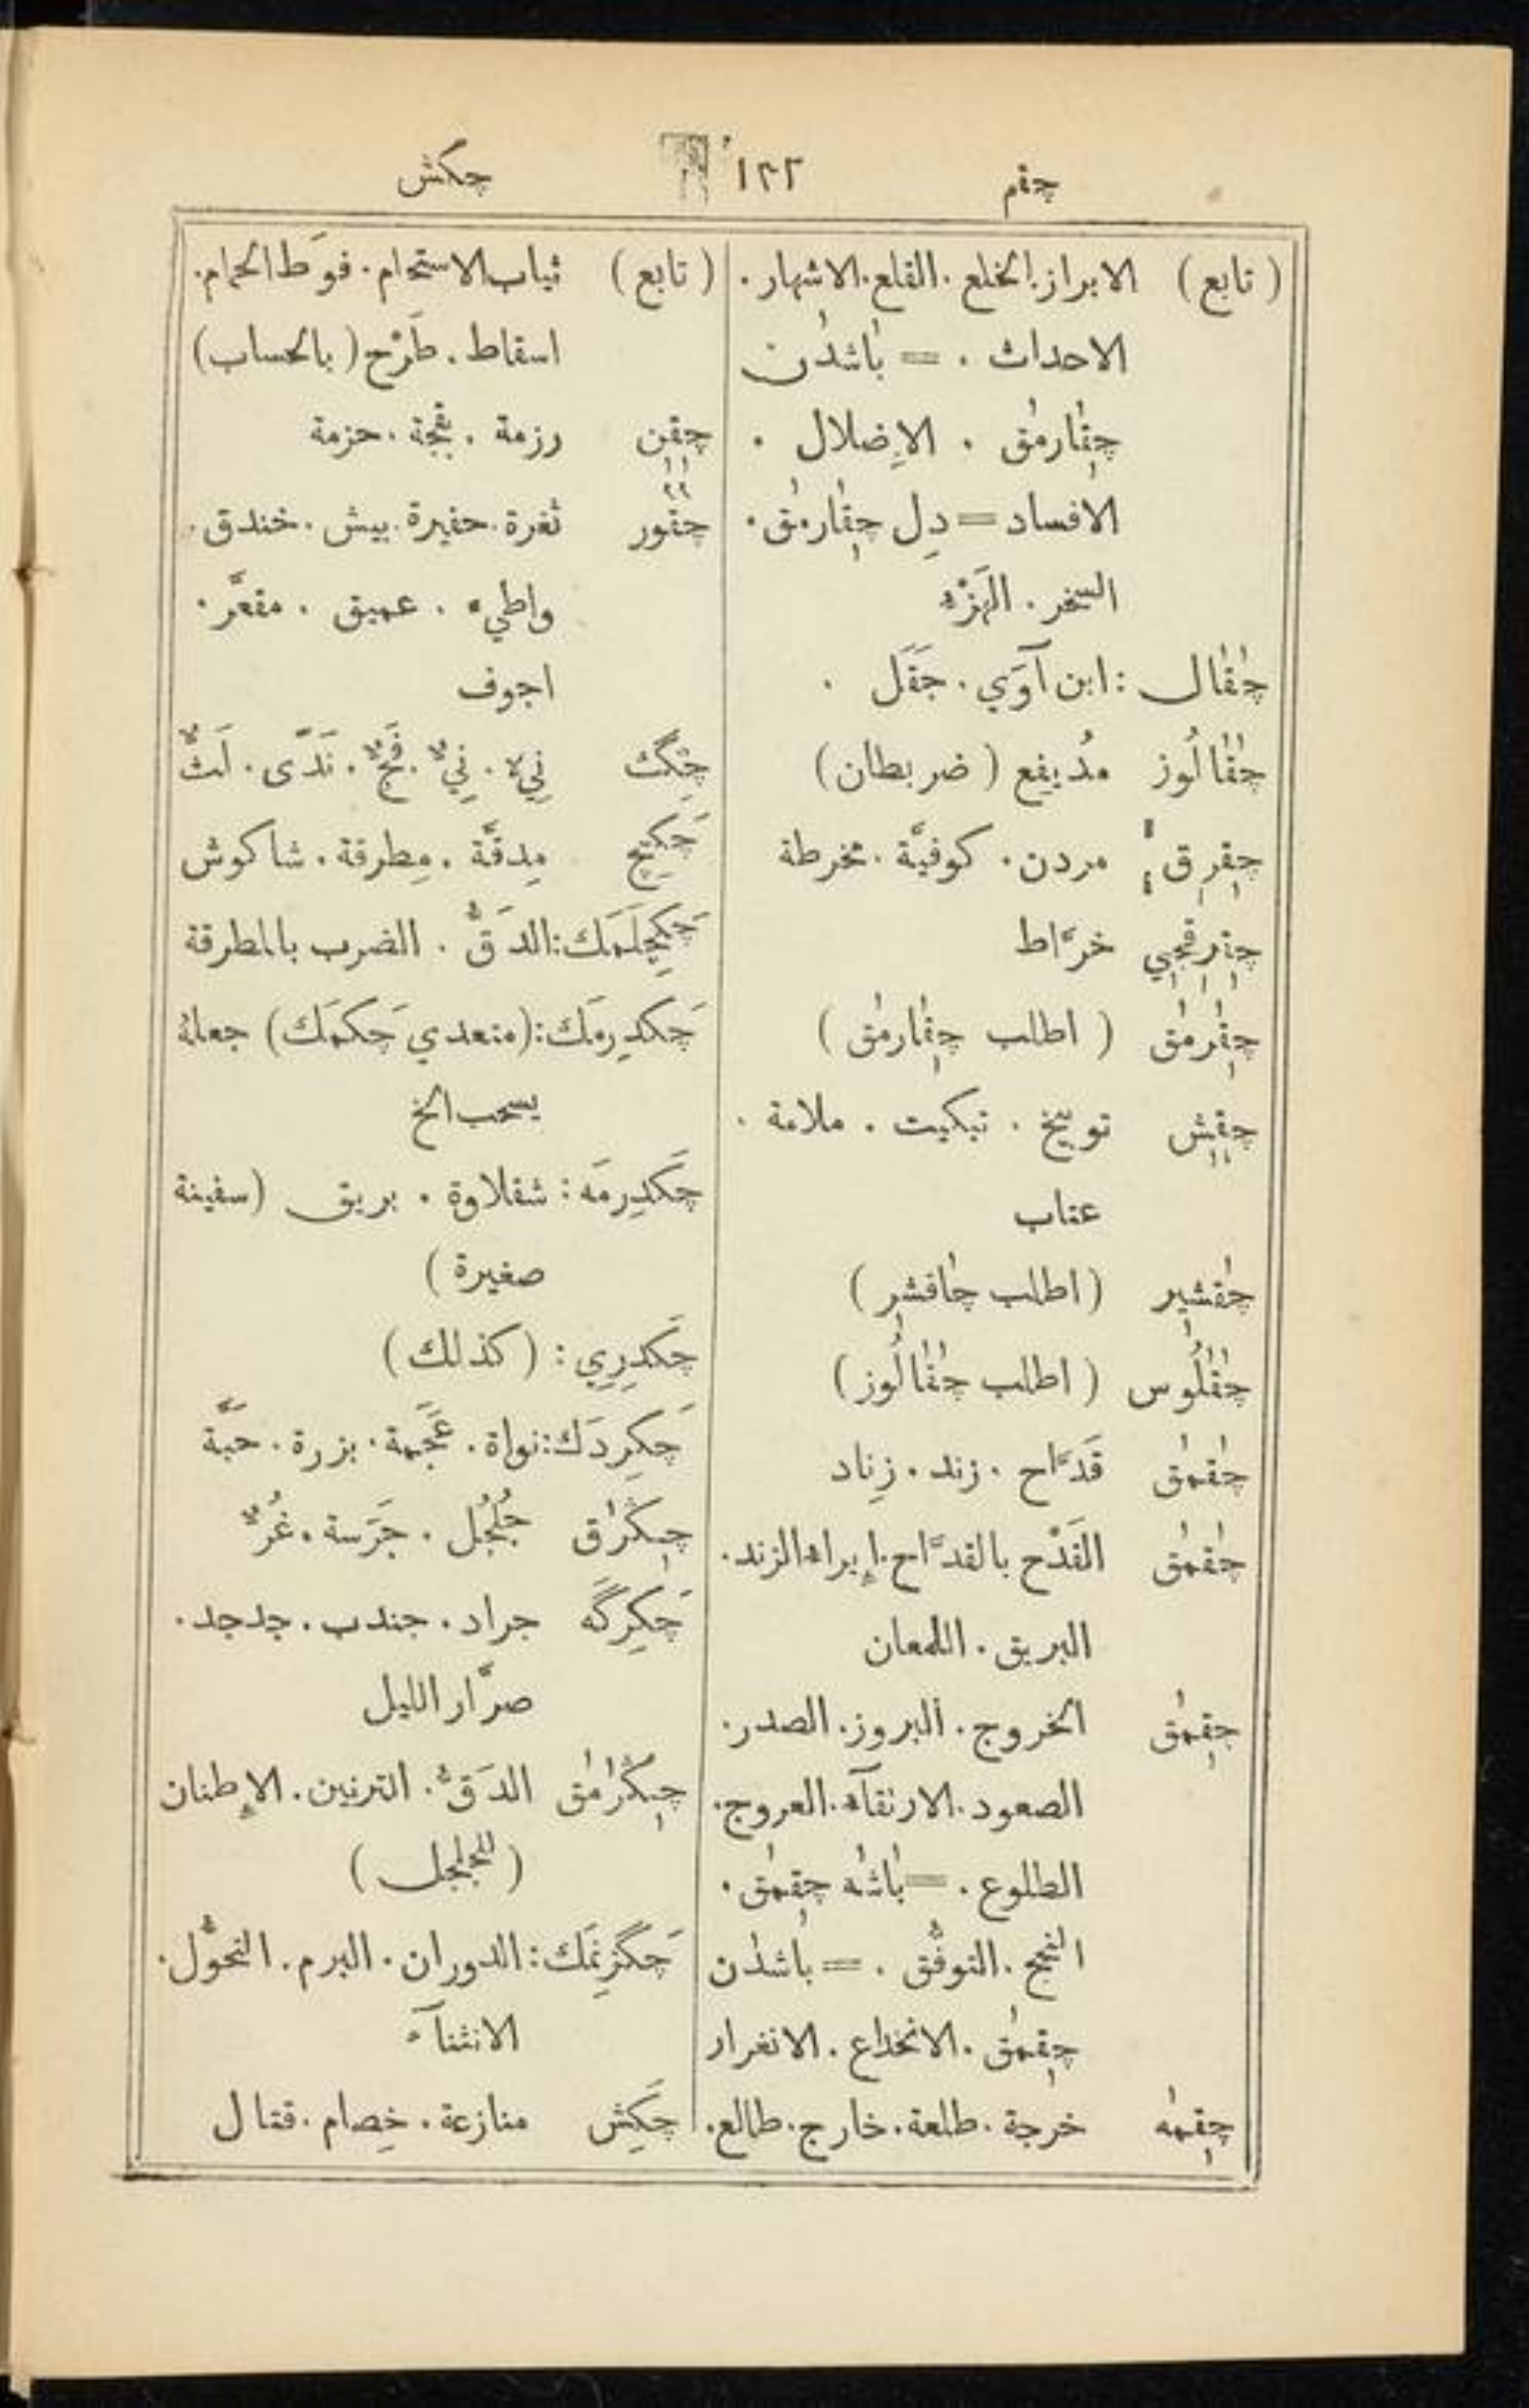 چقم ١٣٢ چكش
( تابع ) الابراز. الخلع . القلع. الاشهار .
الاحداث . = باشدن
چقارمق . الإضلال .
الافساد = دِل چقارمق .
السخر . الهَزْء
چقال : ابن آوَي . جَقَل .
چقالُوز مُدَيفِع ( ضربطان )
چقرق : مردن . كوفيّة . مخرطة
چقرقجي خرَّاط
چقرمق ( اطلب چقارمق )
چقيش توبيخ . تبكيت . ملامة .
عتاب
چقشير ( اطلب چاقشر )
چقلُوس ( اطلب چقالُوز )
چقمق قَدَّاح . زند . زِناد
چقمق القَدْح بالقدَّاح . إيراء الزند .
البريق . اللمعان
چقمق الخروج . البروز . الصدر .
الصعود . الارتقآء . العروج .
الطلوع . = باشه چقمق .
النجح . التوفُّق . = باشدن
چقمق . الانخداع . الانغرار
چقمه خرجة . طلعة . خارج . طالع .
( تابع ) ثياب الاستحمام . فوَط الحمام .
اسقاط . طَرْح ( بالحساب )
چقن رزمة . بقجة . حزمة
چقور ثغرة . حفيرة . بيش . خندق .
واطيء . عميق . مقعَّر .
اجوف
چگك نِيء . نِيٌّ . فَجٌّ . نَدًى . لَثٌّ
چَكِيچ مِدقَّة . مِطرقة . شاكوش
چَكِيجلَمَك : الدَقُّ . الضرب بالمطرقة
چَكدِرمَك : (متعدي چَكمَك) جعلهُ
يسحب الخ
چَكدِرمَه : شقلاوة . بريق (سفينة
صغيرة )
چَكدِرِي : ( كذلك )
چَكِردَك : نواة . عَجَمة . بزرة . حَبَّة
چكراق جُلجُل . جَرَسة . غُرٌّ
چَكِرگَه جراد . جندب . جدجد .
صرَّار الليل
چكرامق الدَقُّ . الترنين . الإطنان
( للجلجل )
چَگزِنمَك : الدوران . البرم . التحوُّل .
الانثنآء
چَكِش منازعة . خِصام . قتال